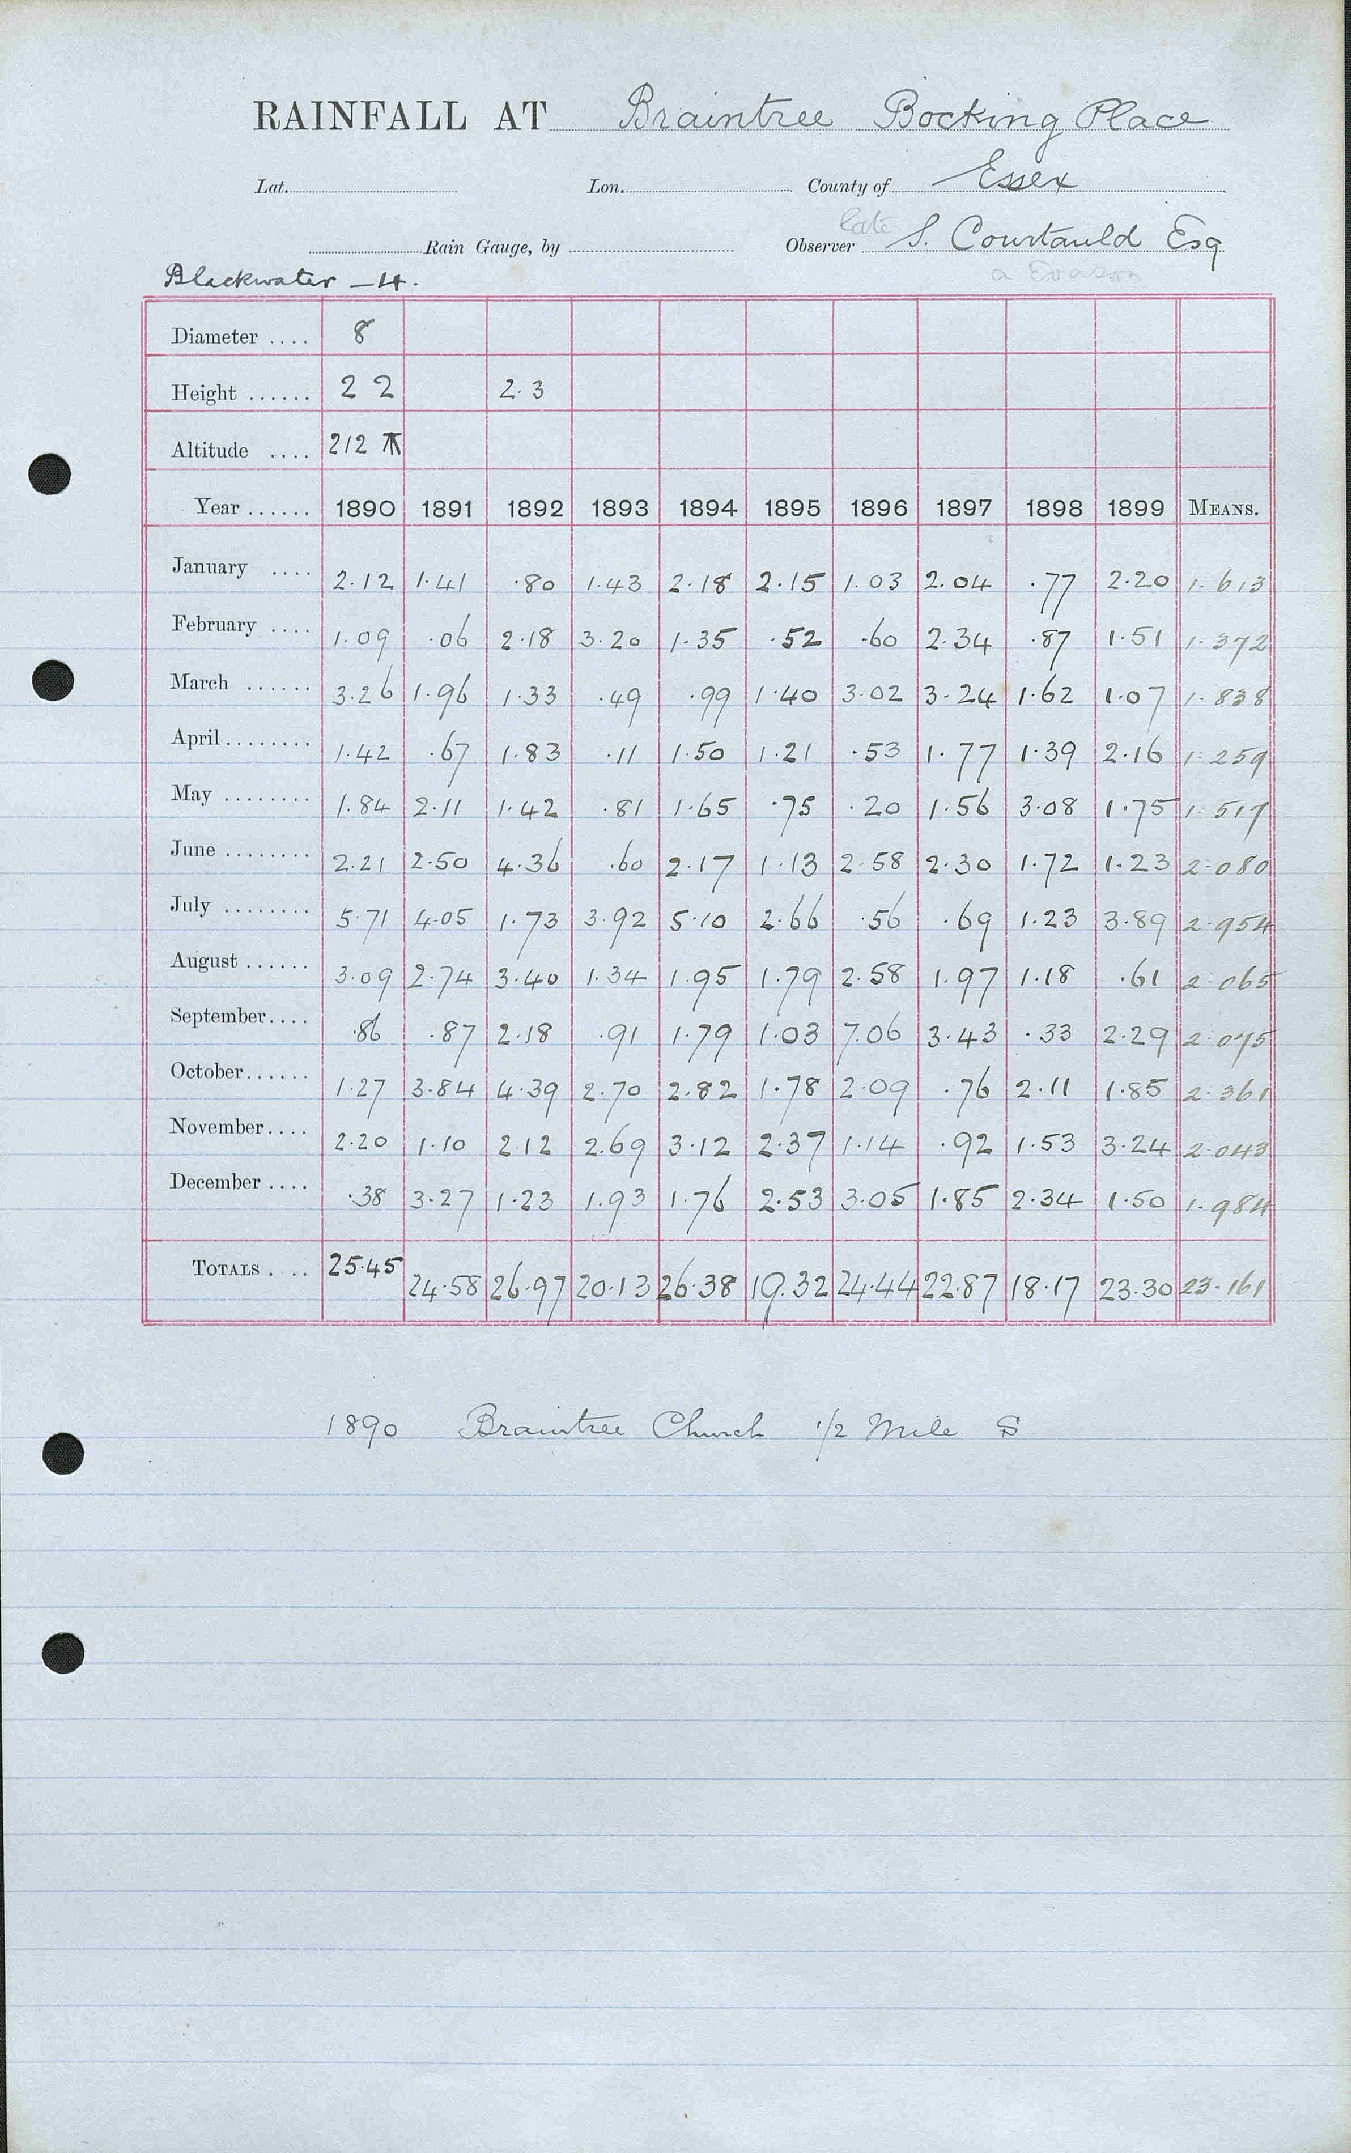 RAINFALL AT Braintree Bocking Place
Lat. Lon. County of Essex
Rain Gauge, by Observer late S. Courtauld Esq
Blackwater - 4.
Diameter .... 8
Height ...... 2 2 2.3
Altitude .... 212
Year ...... 1890 1891 1892 1893 1894 1895 1896 1897 1898 1899 MEANS.
January .... 2.12 1.41 .80 1.43 2.18 2.15 1.03 2.04 .77 2.20 1.613
February .... 1.09 .06 2.18 3.20 1.35 .52 .60 2.34 .87 1.51 1.372
March ...... 3.26 1.96 1.33 .49 .99 1.40 3.02 3.24 1.62 1.07 1.838
April ........ 1.42 .67 1.83 .11 1.50 1.21 .53 1.77 1.39 2.16 1.259
May ........ 1.84 2.11 1.42 .81 1.65 .75 .20 1.56 3.08 1.75 1.517
June ........ 2.21 2.50 4.36 .60 2.17 1.13 2.58 2.30 1.72 1.23 2.080
July ........ 5.71 4.05 1.73 3.92 5.10 2.66 .56 .69 1.23 3.89 2.954
August ...... 3.09 2.74 3.40 1.34 1.95 1.79 2.58 1.97 1.18 .61 2.065
September.... .86 .87 2.18 .91 1.79 1.03 7.06 3.43 .33 2.29 2.075
October...... 1.27 3.84 4.39 2.70 2.82 1.78 2.09 .76 2.11 1.85 2.361
November.... 2.20 1.10 2.12 2.69 3.12 2.37 1.14 .92 1.53 3.24 2.043
December .... .38 3.27 1.23 1.93 1.76 2.53 3.05 1.85 2.34 1.50 1.984
TOTALS .... 25.45 24.58 26.97 20.13 26.38 19.32 24.44 22.87 18.17 23.30 23.161
1890 Braintree Church 1/2 Mile S